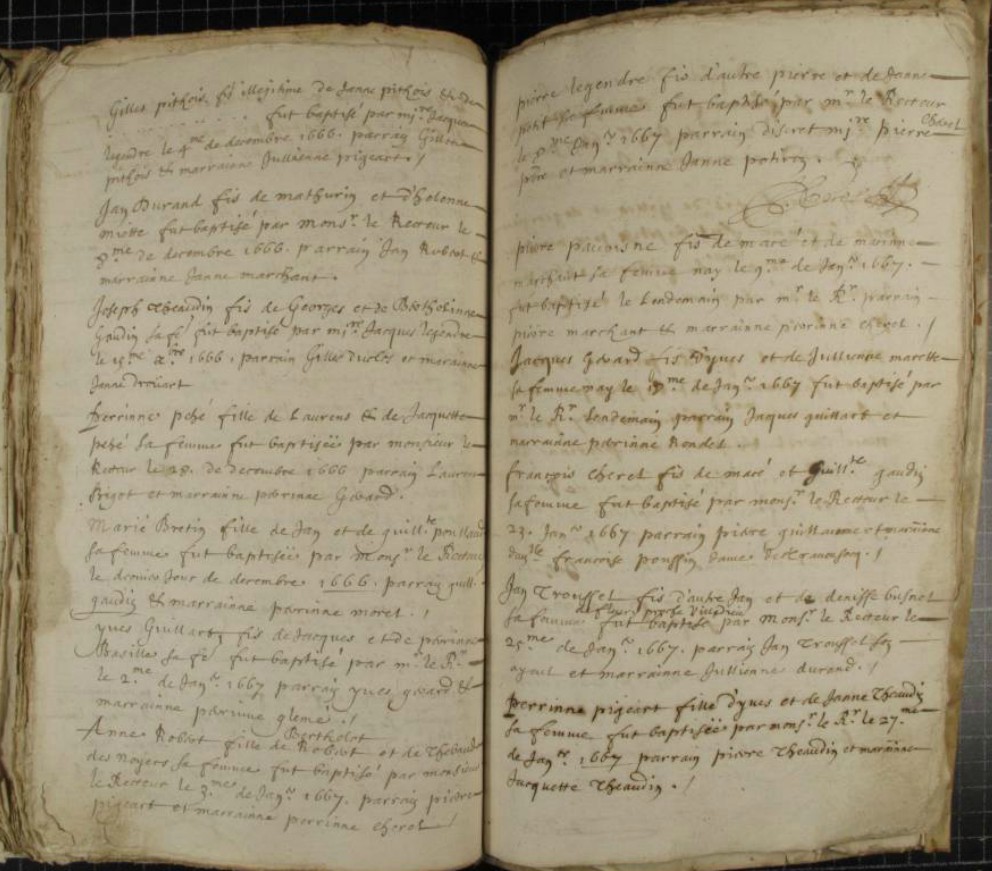 Gilles pithois fis illegitime de Janne pithois & de
fut baptisé par mi.re Jacques
legendre le 4.me de decembre 1666. parrain Gilles
pithois & marrainne Jullienne pigeart ./
Jan Durand fis de mathurin et d'helenne
miotte fut baptisé par mons.r le Recteur le
8.me de decembre 1666. parrain Jan Robert &
marrainne Janne marchant .
Joseph theaudin fis de Georges et de Bertheline
Gaudin sa fe fut baptisé par mi.re Jacques legendre
le 1666 . parrain Gilles et marainne
Janne
Perrinne pehé fille de Laurens & de Jacquette
pehé sa femme fut baptiseë par monsieur le
Recteur le 28. de decembre 1666 parrain Laurens
Brigot et marrainne perrinne Gerard .
Marie Bretin fille de Jan et de guill.te
sa femme fut baptiseë par Mons.r le Recteur
le dernier Jour de decembre 1666. parrain guill.
gaudin & marrainne perrinne morel . /
yves Guillart fis de Jacques et de perrinne
Basille sa fe fut baptisé par m.r le R.r
le 2.me de Jan.er 1667 parrain yves gerard &
marrainne perrinne glemé . /
Berthelot
Anne Robert fille de Robert et de
des noyers sa femme fut baptisé par monsieur
le Recteur le 3.me de Jan.er 1667. parrain pierre
pigeart et marrainne perrinne cherel /
pierre legendre fis d'autre pierre et de Janne
petit sa femme fut baptisé par m.r le Recteur
le 8.me Jan.er 1667 parrain discret mi.re pierre Cherel
prêtre et marrainne Janne .
pierre fis de macé et de
marchant sa femme nay le 9.me de Jan.er 1667.
fut baptisé le Lendemain par m.r le R.r parrain
pierre marchant & marrainne perrinne cherel . /
Jacques Gerard fis d'yves et de Jullienne marette
sa femme nay le de Jan.er 1667 fut baptisé par
m.r le R.r Lendemain parrain Jacques guillart et
marrainne perrinne Rondel .
francois cherel fis de macé et Guill.te gaudin
sa femme fut baptisé par mons.r le Recteur le
23. Jan.er 1667 parrain pierre guillaume et marainne
francoise poussin dame
Jan Troussel fis d'autre Jan et de denisse busnel
sa femme fut baptisé par Mons.r le Recteur le
25.me de Jan.er 1667. parrain Jan Troussel son
ayeul et marrainne Jullienne durand . /
Perrinne pigeart fille d'yves et de Janne Theaudin
sa femme fut baptiseë par mons.r le R.r le 27.me
de Jan.er 1667 parrain pierre Theaudin et marainne
Jacquette Theaudin . /